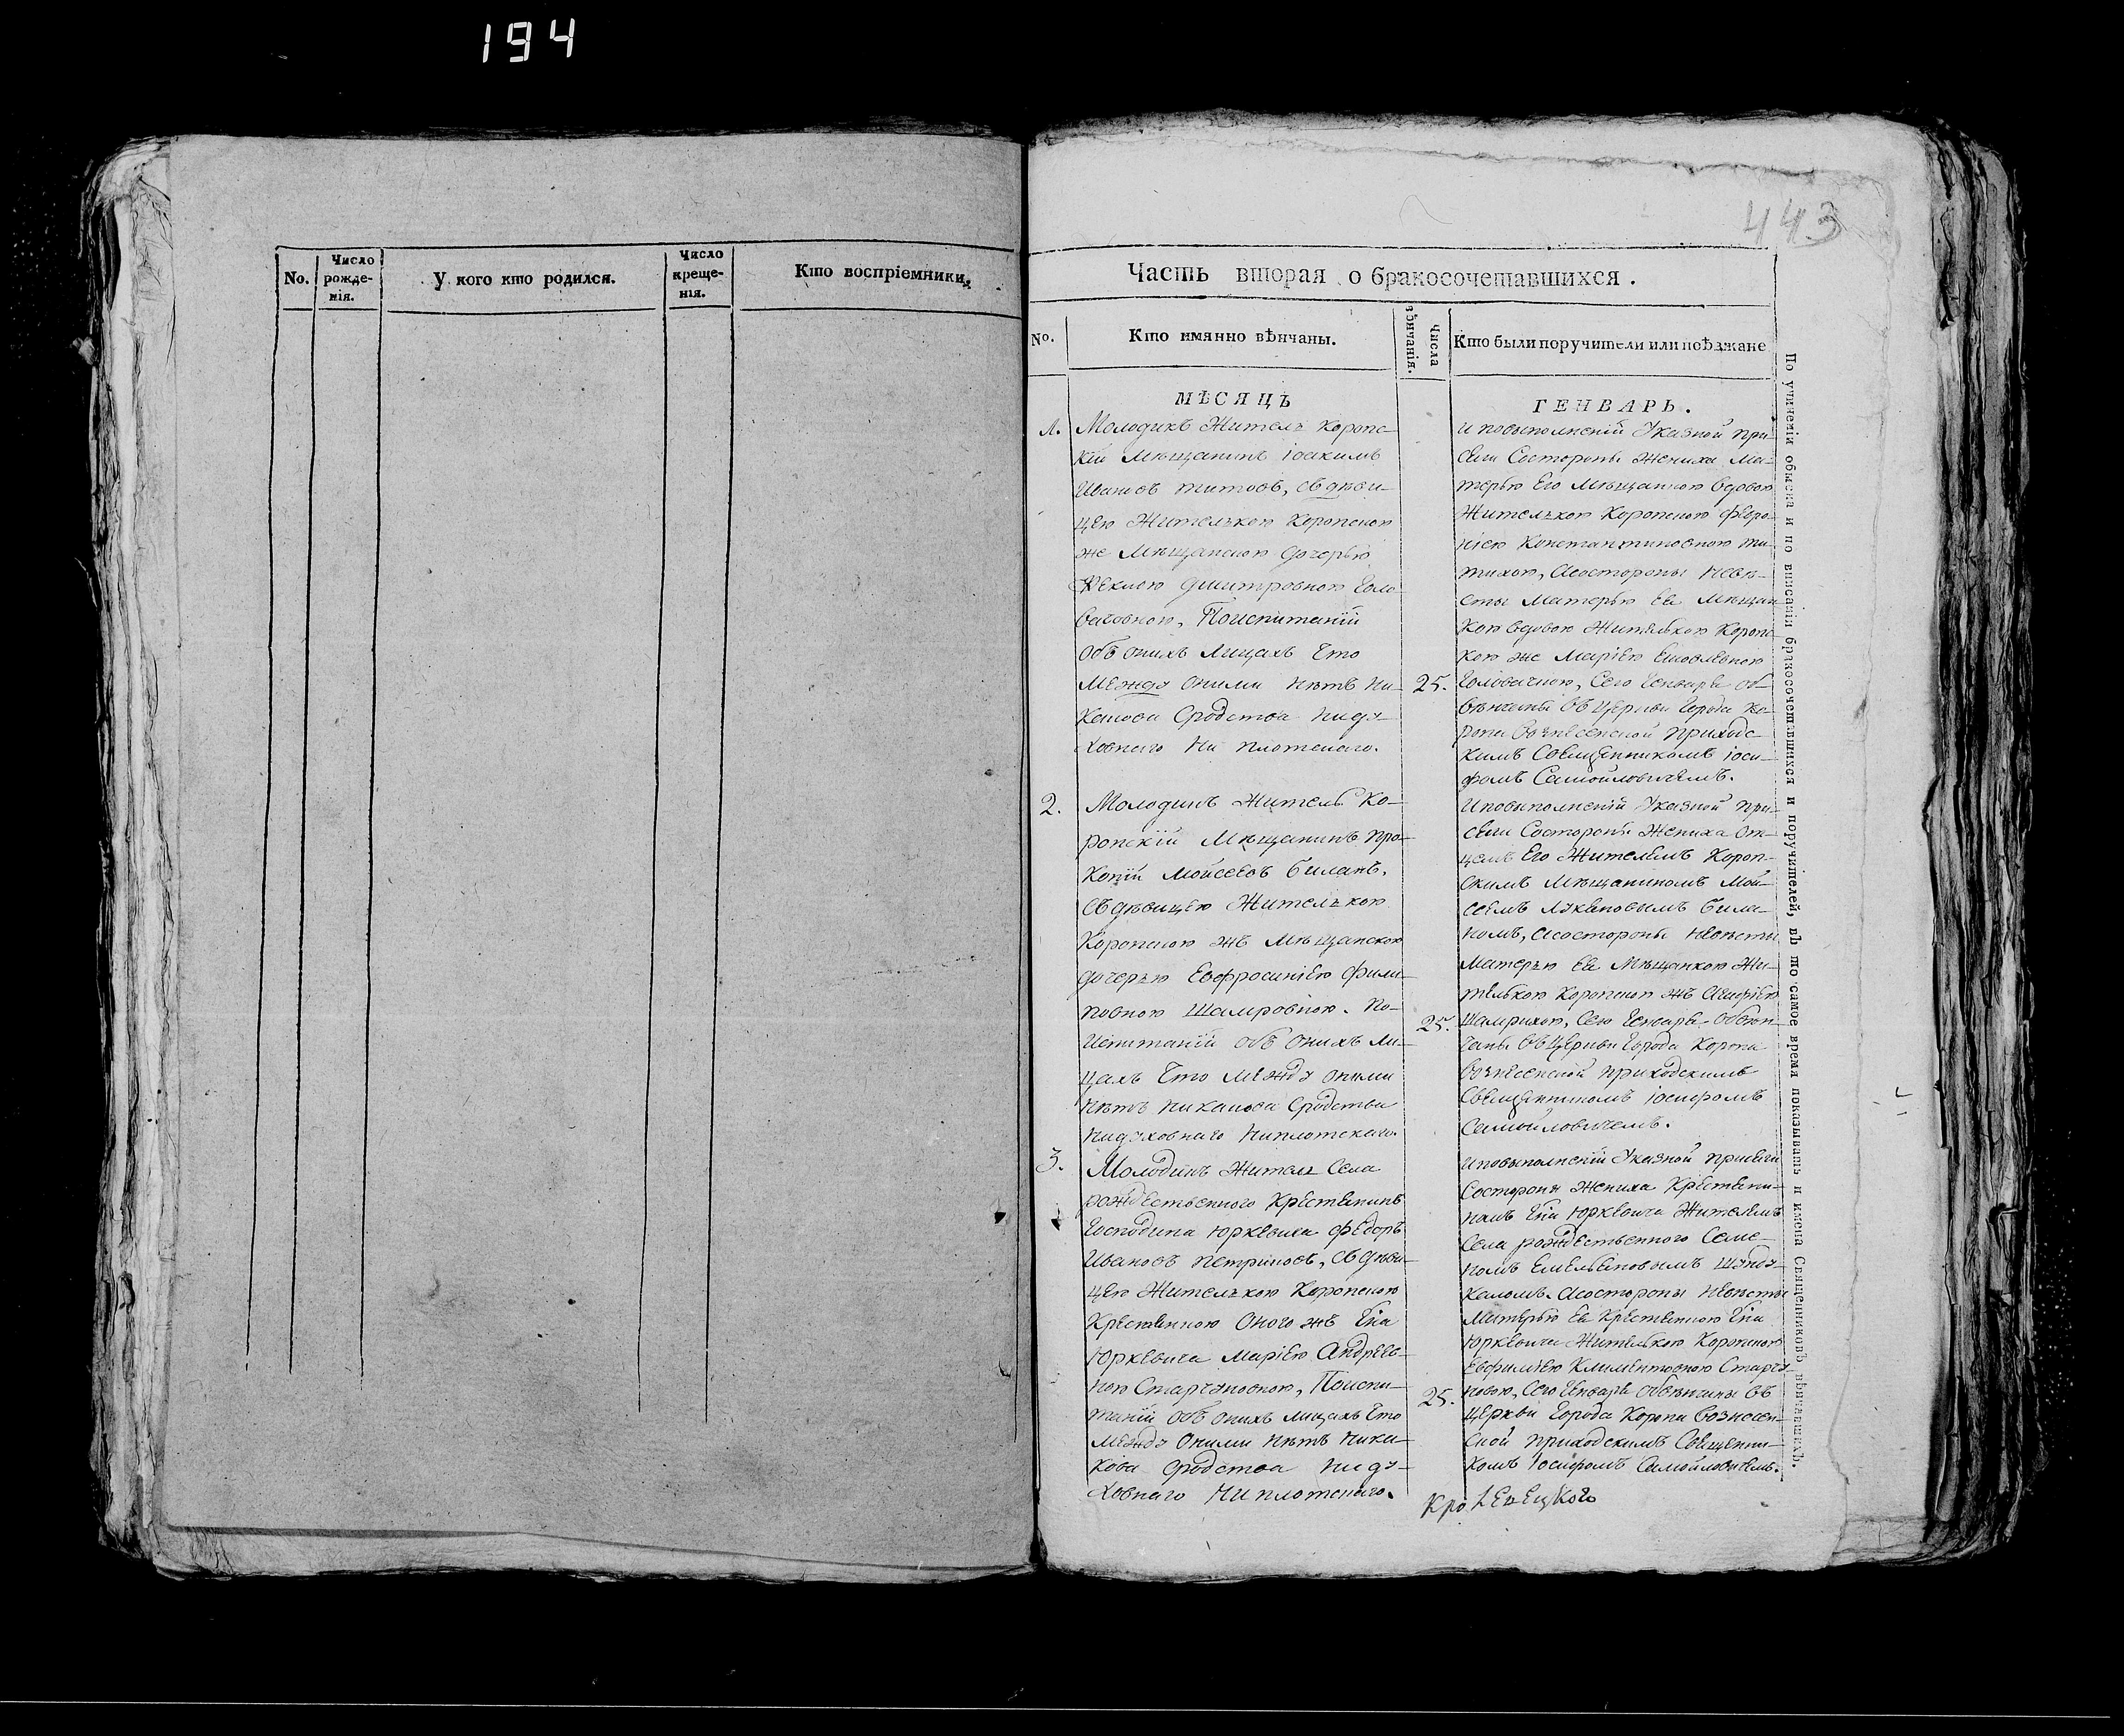 194
443
No.
Число рожде-нія.
У кого кто родился.
Число креще-нія.
Кто воспріемники,
Часть вторая о бракосочетавшихся.
No.
Кто имянно вѣнчаны.
Числа вѣнчанія.
Кто были поручители или поѣзжане
МѢСЯЦЪ
ГЕНВАРЬ.
1.
Молодикъ Житель Коропс-
кій Мѣщанинъ Іоакимъ
Ивановъ Титовъ, съ дѣви-
цею Жителькою Коропскою
же Мѣщанскою дочерью
Феклою Дмитровною Голо-
вачовною, По испитаніи
объ онихъ Лицахъ Что
Между Оними Нѣтъ Ни-
каково Сродства ни ду-
ховнаго Ни плотскаго.
25.
И по выполненіи Указной при-
сяги Со стороны Жениха Ма-
терью Его Мѣщанкою вдовою
Жителькою Коропскою Февро-
ніею Константиновною Ти-
тихою, А со стороны Невѣ-
сты Матерью Ея Мѣщан-
кою вдовою Жителькою Коропс-
кою же Маріею Яковлевною
Головачкою, Сего Генваря об-
вѣнчаны Въ Церкви Города Ко-
ропа Вознесенской Приходс-
кимъ Священникомъ Іоси-
фомъ Самойловичемъ.
2.
Молодикъ Житель Ко-
ропскій Мѣщанинъ Про-
копій Мойсеевъ Биланъ,
Съ дѣвицею Жителькою
Коропскою жъ Мѣщанскою
дочерью Евфросиніею Фили-
повною Шамровною. По-
Испитаніи объ Онихъ Ли-
цахъ Что Между оними
Нѣтъ Никакова Сродства
Ни духовнаго Ни плотскаго.
25.
И по выполненіи Указной при-
сяги Со стороны Жениха От-
цемъ Его Жителемъ Короп-
скимъ Мѣщаниномъ Мой-
сеемъ Лукяновымъ Била-
номъ, А со стороны Невѣсты
Матерью Ея Мѣщанкою Жи-
телькою Коропскою жъ
Шамрихою, Сего Генваря Обвѣн-
чаны Въ Церкви Города Коропа
Вознесенской Приходскимъ
Священникомъ Іосифомъ
Самойловичемъ.
3.
Молодикъ Житель Села
Рождественного Крестянинъ
Господина Юркевича Федоръ
Ивановъ Петриковъ, Съ дѣви-
цею Жителькою Коропскою
Крестянкою Оного жъ Гна
Юркевича Маріею Андреев-
ною Старчуновною, По испи-
таніи объ онихъ лицахъ Что
Между Оними Нѣтъ Ника-
кова Сродства Ни ду-
ховнаго Ни плотскаго.
25.
И по выполненіи Указной присяги
Со стороны Жениха Крестяни-
номъ Гна Юркевича Жителемъ
Села Рождественного Семе-
номъ Емельяновымъ
А со стороны Невѣсты
Матерью Ея Крестянкою Гна
Юркевича Жителькою Коропскою
Евфиміею Климентовною Старчу-
новою, Сего Генваря Обвѣнчаны Въ
Церкви Города Коропа Вознесен-
ской Приходскимъ Священни-
комъ Іосифомъ Самойловичемъ.
Кролевецкого
По учиненіи обыска и по вписаніи бракосочетавшихся и поручителей, въ то самое время показывать и имена Священниковъ вѣнчавшихъ.